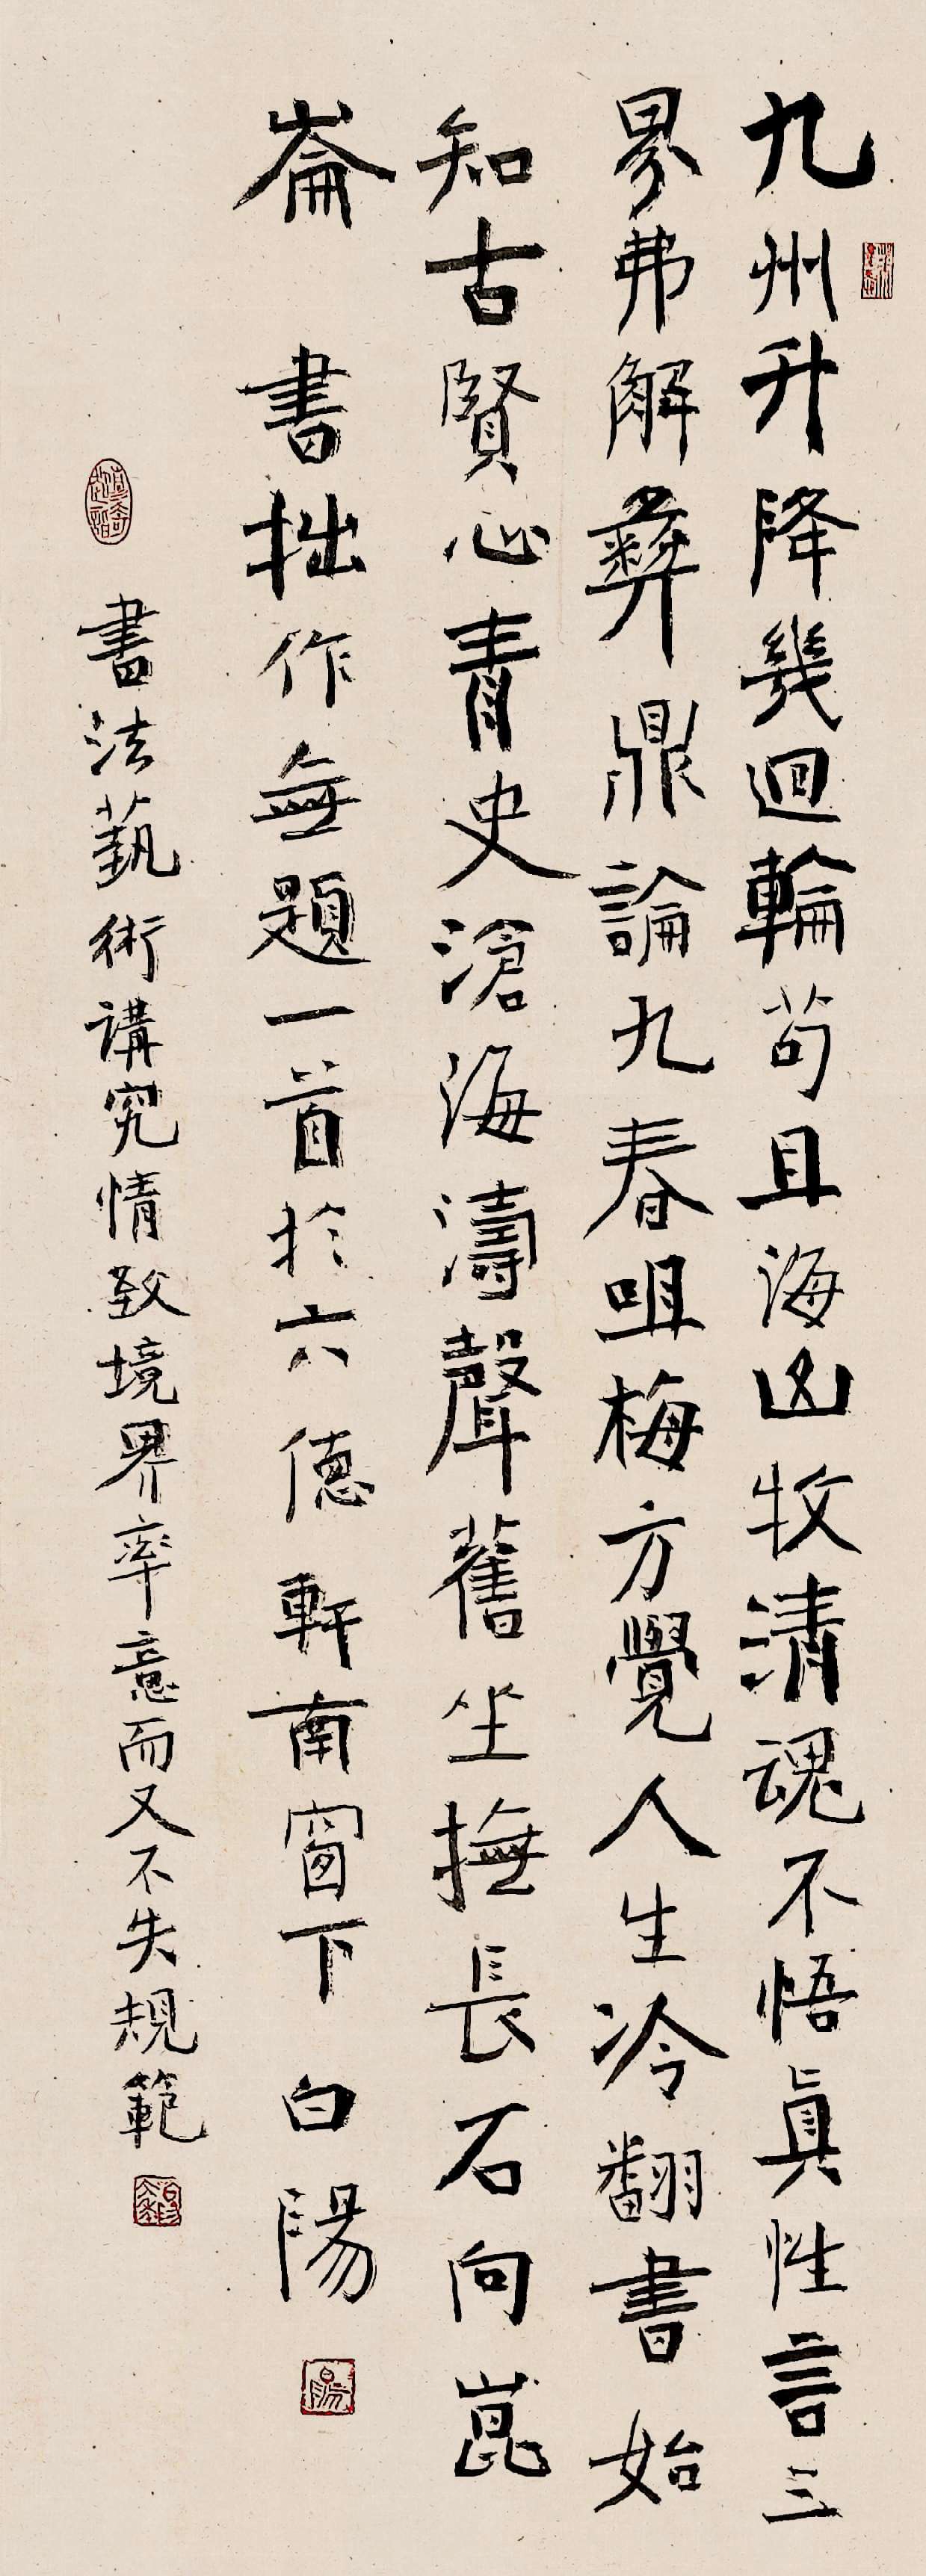 九州升降幾迴輪苟且海山牧清魂不悟真性言三
界弗解彝鼎論九春咀梅方覺人生冷翻書始
知古賢心青史滄海濤聲舊坐撫長石向崑
崙 書拙作無題一首於六德軒南窗下 白陽
書法藝術講究情致境界率意而又不失規範